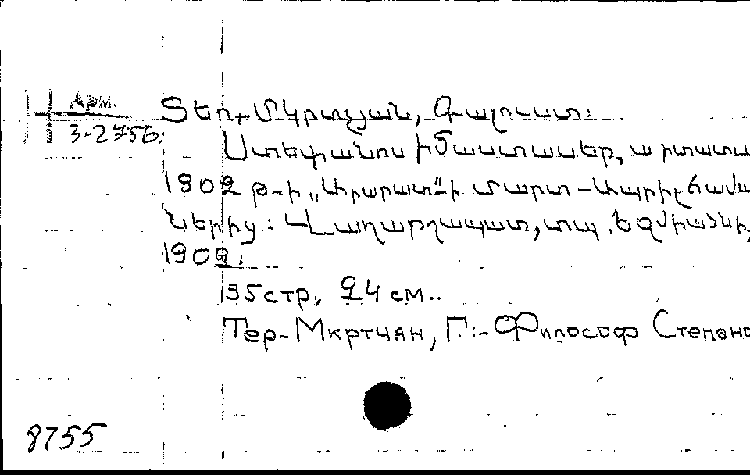 Арм.
3-2756.
Տեր-Մկրտչյան, Գալուստ:
Ստեփանոս իմաստասեր, արտատ
1902 թ-ի „Արարատ“-ի մարտ-ապրիլ համա
ներից: Վաղարշապատ, տպ. Էջմիածնի,
1902.
35 стр, 24 см..
Тер-Мкртчян, Г.:-Философ Степано
8755